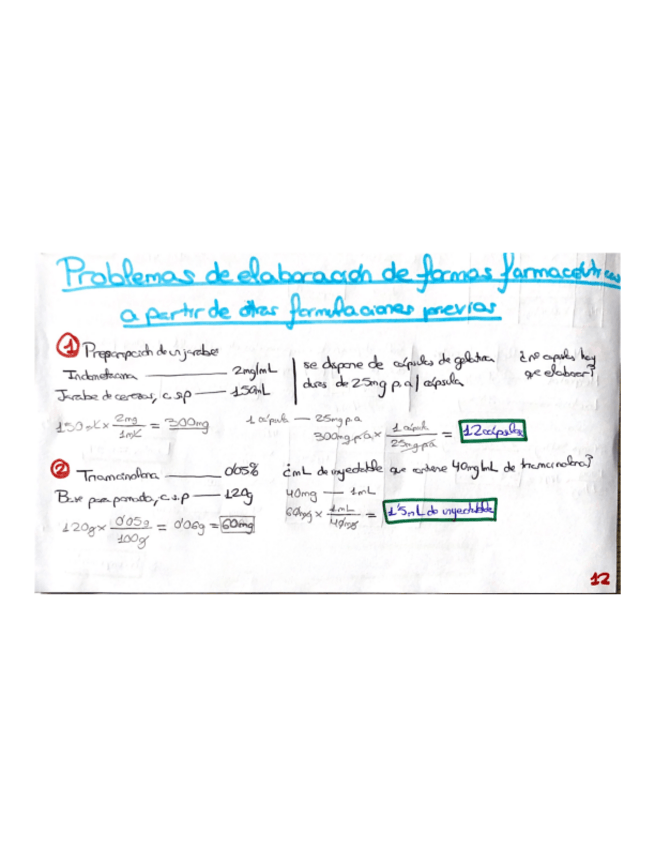 Problemas de elaboración de formas farmacéuticas
a partir de otras formulaciones previas
1 Preparación de un jarabe
Indometacina 2mg/mL
Jarabe de cerezas, c.s.p 150mL
se dispone de cápsulas de gelatina
duras de 25mg p.a / cápsula
¿nº capsulas hay
que elaborar?
150 mL x 2mg/1mL = 300mg
1 cápsula — 25mg p.a
300mg p.a x 1 cápsula/25mg p.a = 12 cápsulas
2 Triamcinolona 0'05%
Base para pomada, c.s.p 120g
¿mL de inyectable que contiene 40mg/mL de triamcinolona?
120g x 0'05g/100g = 0'06g = 60mg
40mg — 1mL
60mg x 1mL/40mg = 1'5mL de inyectable
12